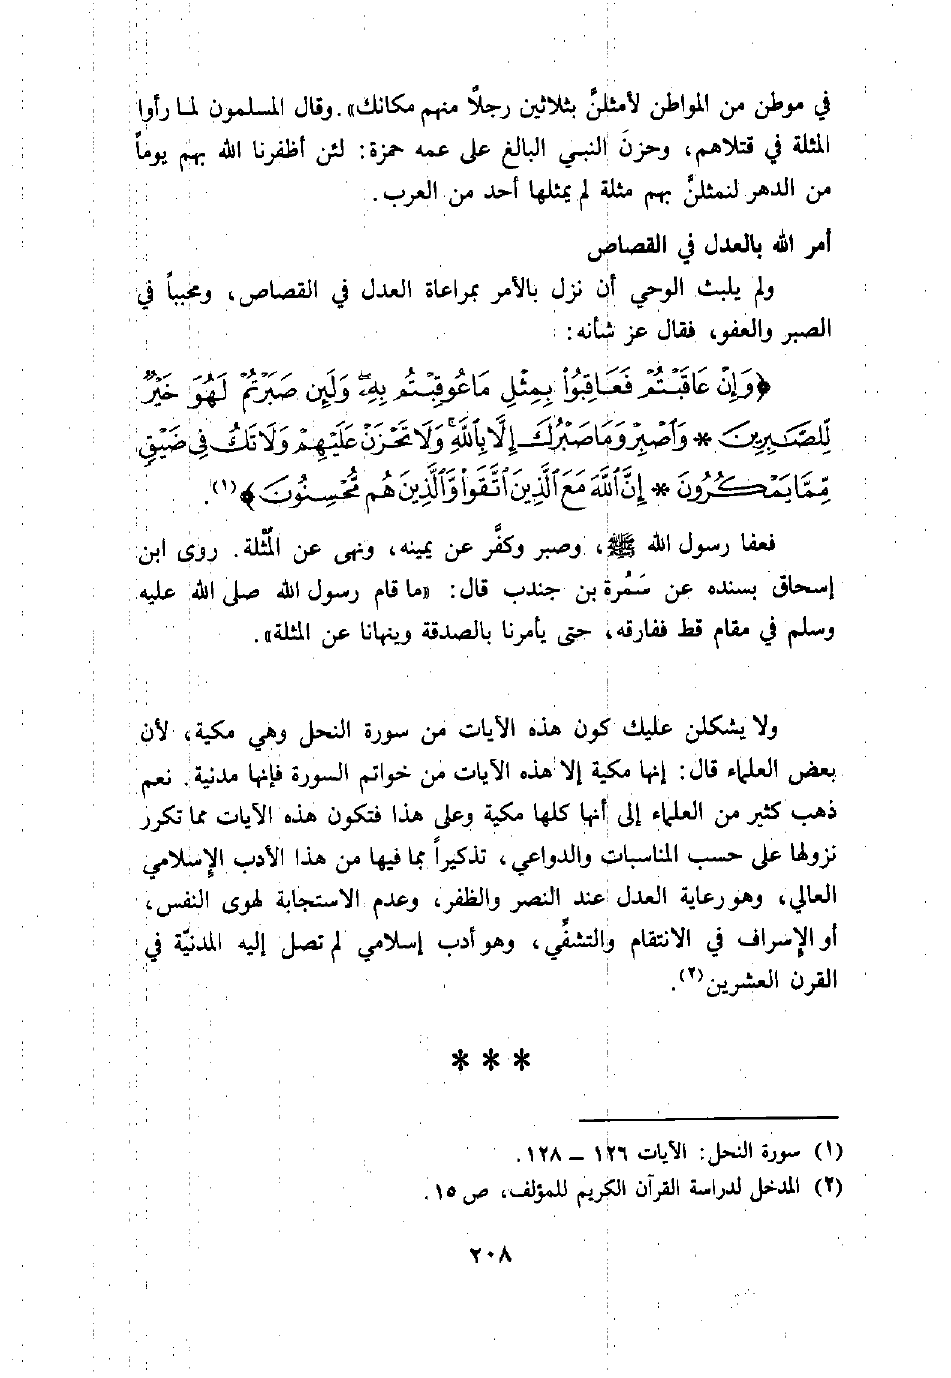 في موطن من المواطن لأمثلنَّ بثلاثين رجلاً منهم مكانك». وقال المسلمون لما رأوا
المثلة في قتلاهم، وحزنَ النبي البالغ على عمه حمزة: لئن أظفرنا الله بهم يوماً
من الدهر لنمثلنَّ بهم مثلة لم يمثلها أحد من العرب.
أمر الله بالعدل في القصاص
ولم يلبث الوحي أن نزل بالأمر بمراعاة العدل في القصاص، ومحبباً في
الصبر والعفو، فقال عز شأنه:
﴿وَإِنْ عَاقَبْتُمْ فَعَاقِبُوا۟ بِمِثْلِ مَا عُوقِبْتُم بِهِۦ وَلَئِن صَبَرْتُمْ لَهُوَ خَيْرٌ
لِّلصَّٰبِرِينَ * وَٱصْبِرْ وَمَا صَبْرُكَ إِلَّا بِٱللَّهِ وَلَا تَحْزَنْ عَلَيْهِمْ وَلَا تَكُ فِى ضَيْقٍ
مِّمَّا يَمْكُرُونَ * إِنَّ ٱللَّهَ مَعَ ٱلَّذِينَ ٱتَّقَوا۟ وَّٱلَّذِينَ هُم مُّحْسِنُونَ﴾(١).
فعفا رسول الله ﷺ، وصبر وكفَّر عن يمينه، ونهى عن المُثْلة. روى ابن
إسحاق بسنده عن سَمُرة بن جندب قال: «ما قام رسول الله صلى الله عليه
وسلم في مقام قط ففارقه، حتى يأمرنا بالصدقة وينهانا عن المثلة».
ولا يشكلن عليك كون هذه الآيات من سورة النحل وهي مكية، لأن
بعض العلماء قال: إنها مكية إلا هذه الآيات من خواتم السورة فإنها مدنية. نعم
ذهب كثير من العلماء إلى أنها كلها مكية وعلى هذا فتكون هذه الآيات مما تكرر
نزولها على حسب المناسبات والدواعي، تذكيراً بما فيها من هذا الأدب الإسلامي
العالي، وهو رعاية العدل عند النصر والظفر، وعدم الاستجابة لهوى النفس،
أو الإسراف في الانتقام والتشفّي، وهو أدب إسلامي لم تصل إليه المدنيّة في
القرن العشرين(٢).
* * *
(١) سورة النحل: الآيات ١٢٦ – ١٢٨.
(٢) المدخل لدراسة القرآن الكريم للمؤلف، ص ١٥.
٢٠٨